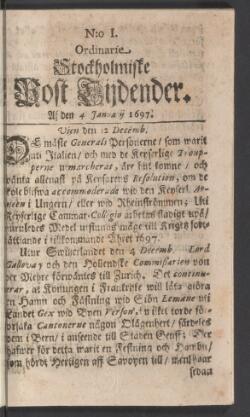 N:o I.
Ordinarie
Stockholmiske
Post Tijdender.
Aff den 4 Januarij 1697.
Wien den 12 Decemb.
DE Generals Personerne / som warit
uti Italien / och med de Keyserlige Troup-
perne utmarcherat / äre hijt komne / och
wänta allenast på Keysarens Resolution, om de
skole blifwa accommoderade wid den Keyserl. Ar-
méen i Ungern / eller wid Rheinströmmen; Uti
Keyserlige Cammar-Collegio arbetes stadigt uppå /
huruledes Medel utfinnas måge till Krigets fort-
sättiande i tilkommande Åhret 1697.
Utur Switzerlandet den 4 Decemb. Lord
Galloway och den Holländske Commissarien von
der Meyre förwäntes till Zürich. Det continue-
rar, at Konungen i Franckrijke will låta giöra
en Hamn och Fästning wid Siön Lemane uti
Landet Gex wid Byen Versoy, i
Cantonerne någon Olägenheet / särdeles
dem i Bern / i anseende till Staden Genff; Der
hafwer för detta warit en Festning och Hambn /
som hördt Hertigen aff Savoyen till / men
sedan